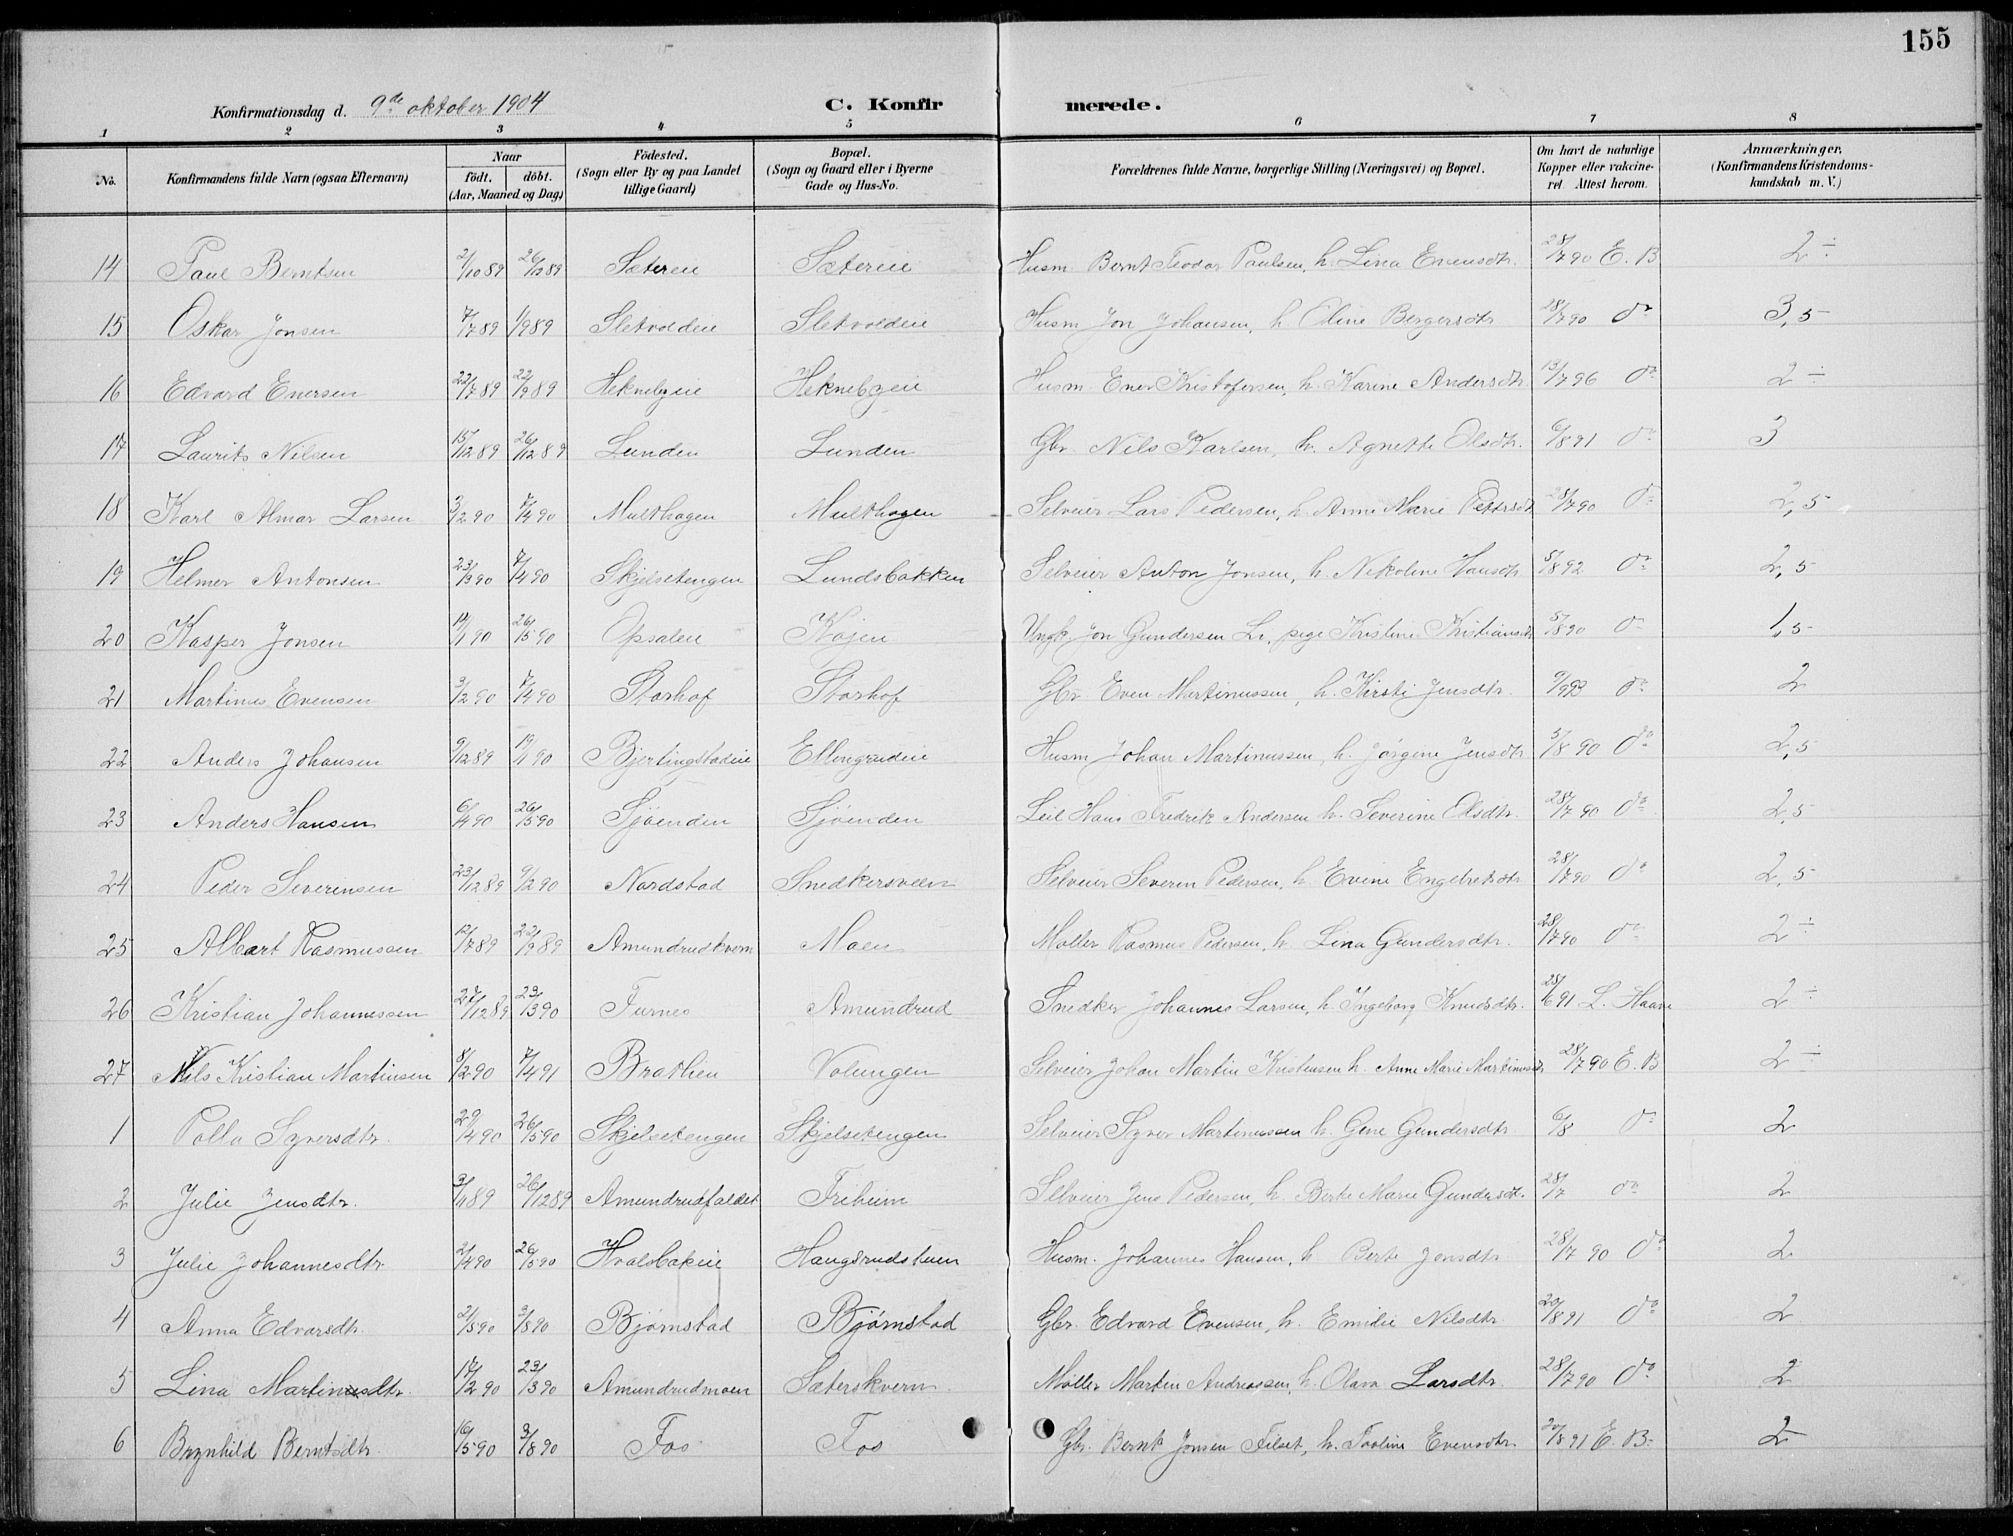 155
Konfirmationsdag d. 9de oktober 1904 C. Konfirmerede.
1 2 3 4 5 6 7 8
No. Konfirmandens fulde Navn (ogsaa Efternavn) Naar født. døbt. (Aar, Maaned og Dag) Fødested. (Sogn eller By og paa Landet tillige Gaard) Bopæl. (Sogn og Gaard eller i Byerne Gade og Hus-No. Forældrenes fulde Navne, borgerlige Stilling (Næringsvei) og Bopæl. Om havt de naturlige Kopper eller vakcineret. Attest herom. Anmærkninger. (Konfirmandens Kristendomskundskab m. V.)
14 Paul Berntsen 2/10 89 26/12 89 Sætereie Sætereie Husm Bernt Teodor Paulsen, h. Lina Evensdtr. 28/7 90 E. B 2 ÷
15 Oskar Jonsen 7/7 89 1/9 89 Sletvoldeie Sletvoldeie Husm Jon Johansen, h. Eline Bergersdtr 28/7 90 do 3,5
16 Edvard Enersen 22/7 89 22/9 89 Heknebyeie Heknebyeie Husm Ener Kristofersen, h. Karine Andersdtr 13/7 96 do 2 ÷
17 Laurits Nilsen 15/12 89 26/12 89 Lunden Lunden Gbr. Nils Karlsen, h. Agnette Olsdtr. 6/8 91 do 3
18 Karl Almar Larsen 3/2 90 7/4 90 Multhagen Multhagen Selveier Lars Pedersen, h. Anne Marie Pettersdtr 28/7 90 do 2,5
19 Helmer Antonsen 23/3 90 7/4 90 Skjelsetengen Lundsbakken Selveier Anton Jonsen, h. Nikoline Hansdtr 5/8 92 do 2,5
20 Kasper Jonsen 14/1 90 26/5 90 Opsaleie Kojen Ungk. Jon Gundersen Lr, pige Kristine Kristiansdtr 5/8 90 do 1,5
21 Martinus Evensen 3/2 90 7/4 90 Storhof Storhof Gbr. Even Martinussen, h. Kirsti Jensdtr. 9/9 93 do 2
22 Anders Johansen 9/12 89 19/1 90 Bjertingstadeie Ellingrudeie Husm Johan Martinussen, h. Jørgine Jensdtr 5/8 90 do 2,5
23 Anders Hansen 6/4 90 26/5 90 Sjøenden Sjøenden Leil Hans Fredrik Andersen h. Severine Olsdtr. 28/7 90 do 2,5
24 Peder Severinsen 23/12 89 9/2 90 Nordstad Snedkersveen Selveier Severin Pedersen, h. Evine Engebretsdtr 28/7 90 do 2,5
25 Albert Rasmussen 12/7 89 22/9 89 Amundrudkvern Moen Møller Rasmus Pedersen, h. Lina Gundersdtr. 28/7 90 do 2 ÷
26 Kristian Johannessen 27/12 89 23/3 90 Furnes Amundrud Snedker Johannes Larsen, h. Ingeborg Knudsdtr. 28/6 91 L. Haave 2 ÷
27 Nils Kristian Martinsen 8/2 90 7/4 91 Brathen Volungen Selveier Johan Martin Kristensen h. Anne Marie Martinusdtr 28/7 90 E. B 2 ÷
1 Polla Syversdtr. 29/4 90 26/5 90 Skjelsetengen Skjelsetengen Selveier Syver Martinussen h. Gine Gundersdtr 6/8 do 2
2 Julie Jensdtr. 3/11 89 26/12 89 Amundrudfaldet Friheim Selveier Jens Pedersen, h. Berte Marie Gundersdtr. 28/7 do 2
3 Julie Johannesdtr 2/4 90 26/5 90 Hvalsbakeie Haugsrudstuen Husm. Johannes Hansen, h Berte Jonsdtr 28/7 90 do 2
4 Anna Edvarsdtr. 2/5 90 3/8 90 Bjørnstad Bjørnstad Gbr. Edvard Evensen, h. Emilie Nilsdtr 20/8 91 do 2
5 Lina Martinusdtr. 17/2 90 23/3 90 Amundrudmoen Sæterskvern Møller Martin Andreassen, h. Olava Larsdtr. 28/7 90 do 2
6 Brynhild Berntsdtr. 16/5 90 3/8 90 Fos Fos Gbr. Bernt Jonsen Filset, h. Pauline Evensdtr. 20/8 91 E. B. 2